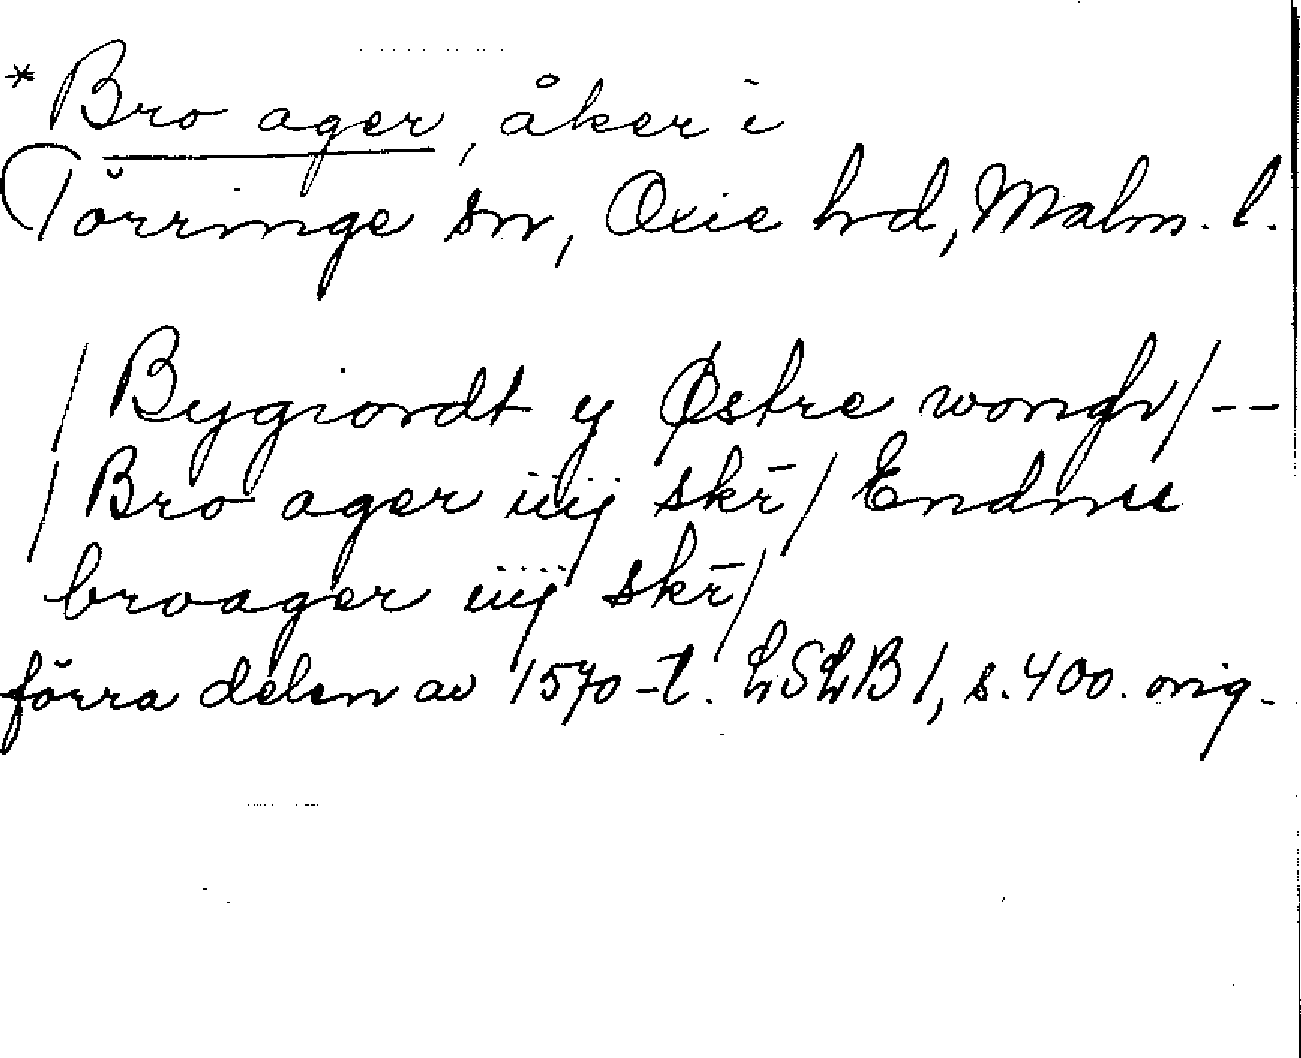 *Bro ager, åker i
Törringe sn, Oxie hd, Malm. l.
/ Bygiordt y Østre wongh / --
/ Bro ager iiij skr̄ / Endnu
broager iiij skr̄ /
förra delen av 1570-t. LSLB 1, s. 400. orig.